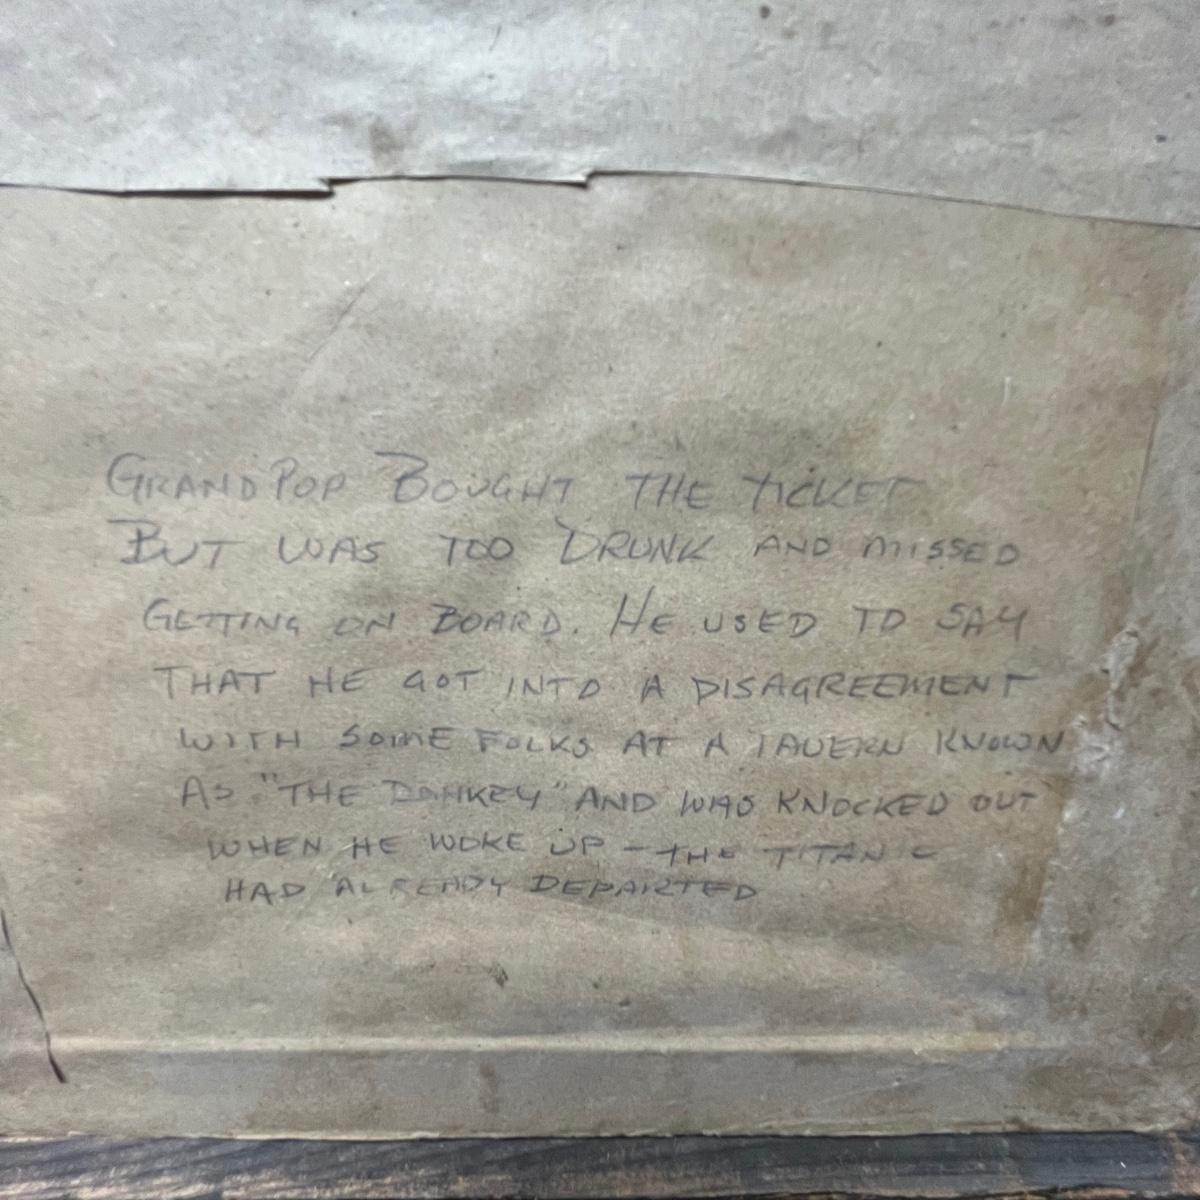 GRANDPOP BOUGHT THE TICKET
BUT WAS TOO DRUNK AND MISSED
GETTING ON BOARD. HE USED TO SAY
THAT HE GOT INTO A DISAGREEMENT
WITH SOME FOLKS AT A TAVERN KNOWN
AS "THE DONKEY" AND WAS KNOCKED OUT
WHEN HE WOKE UP - THE TITANIC
HAD ALREADY DEPARTED